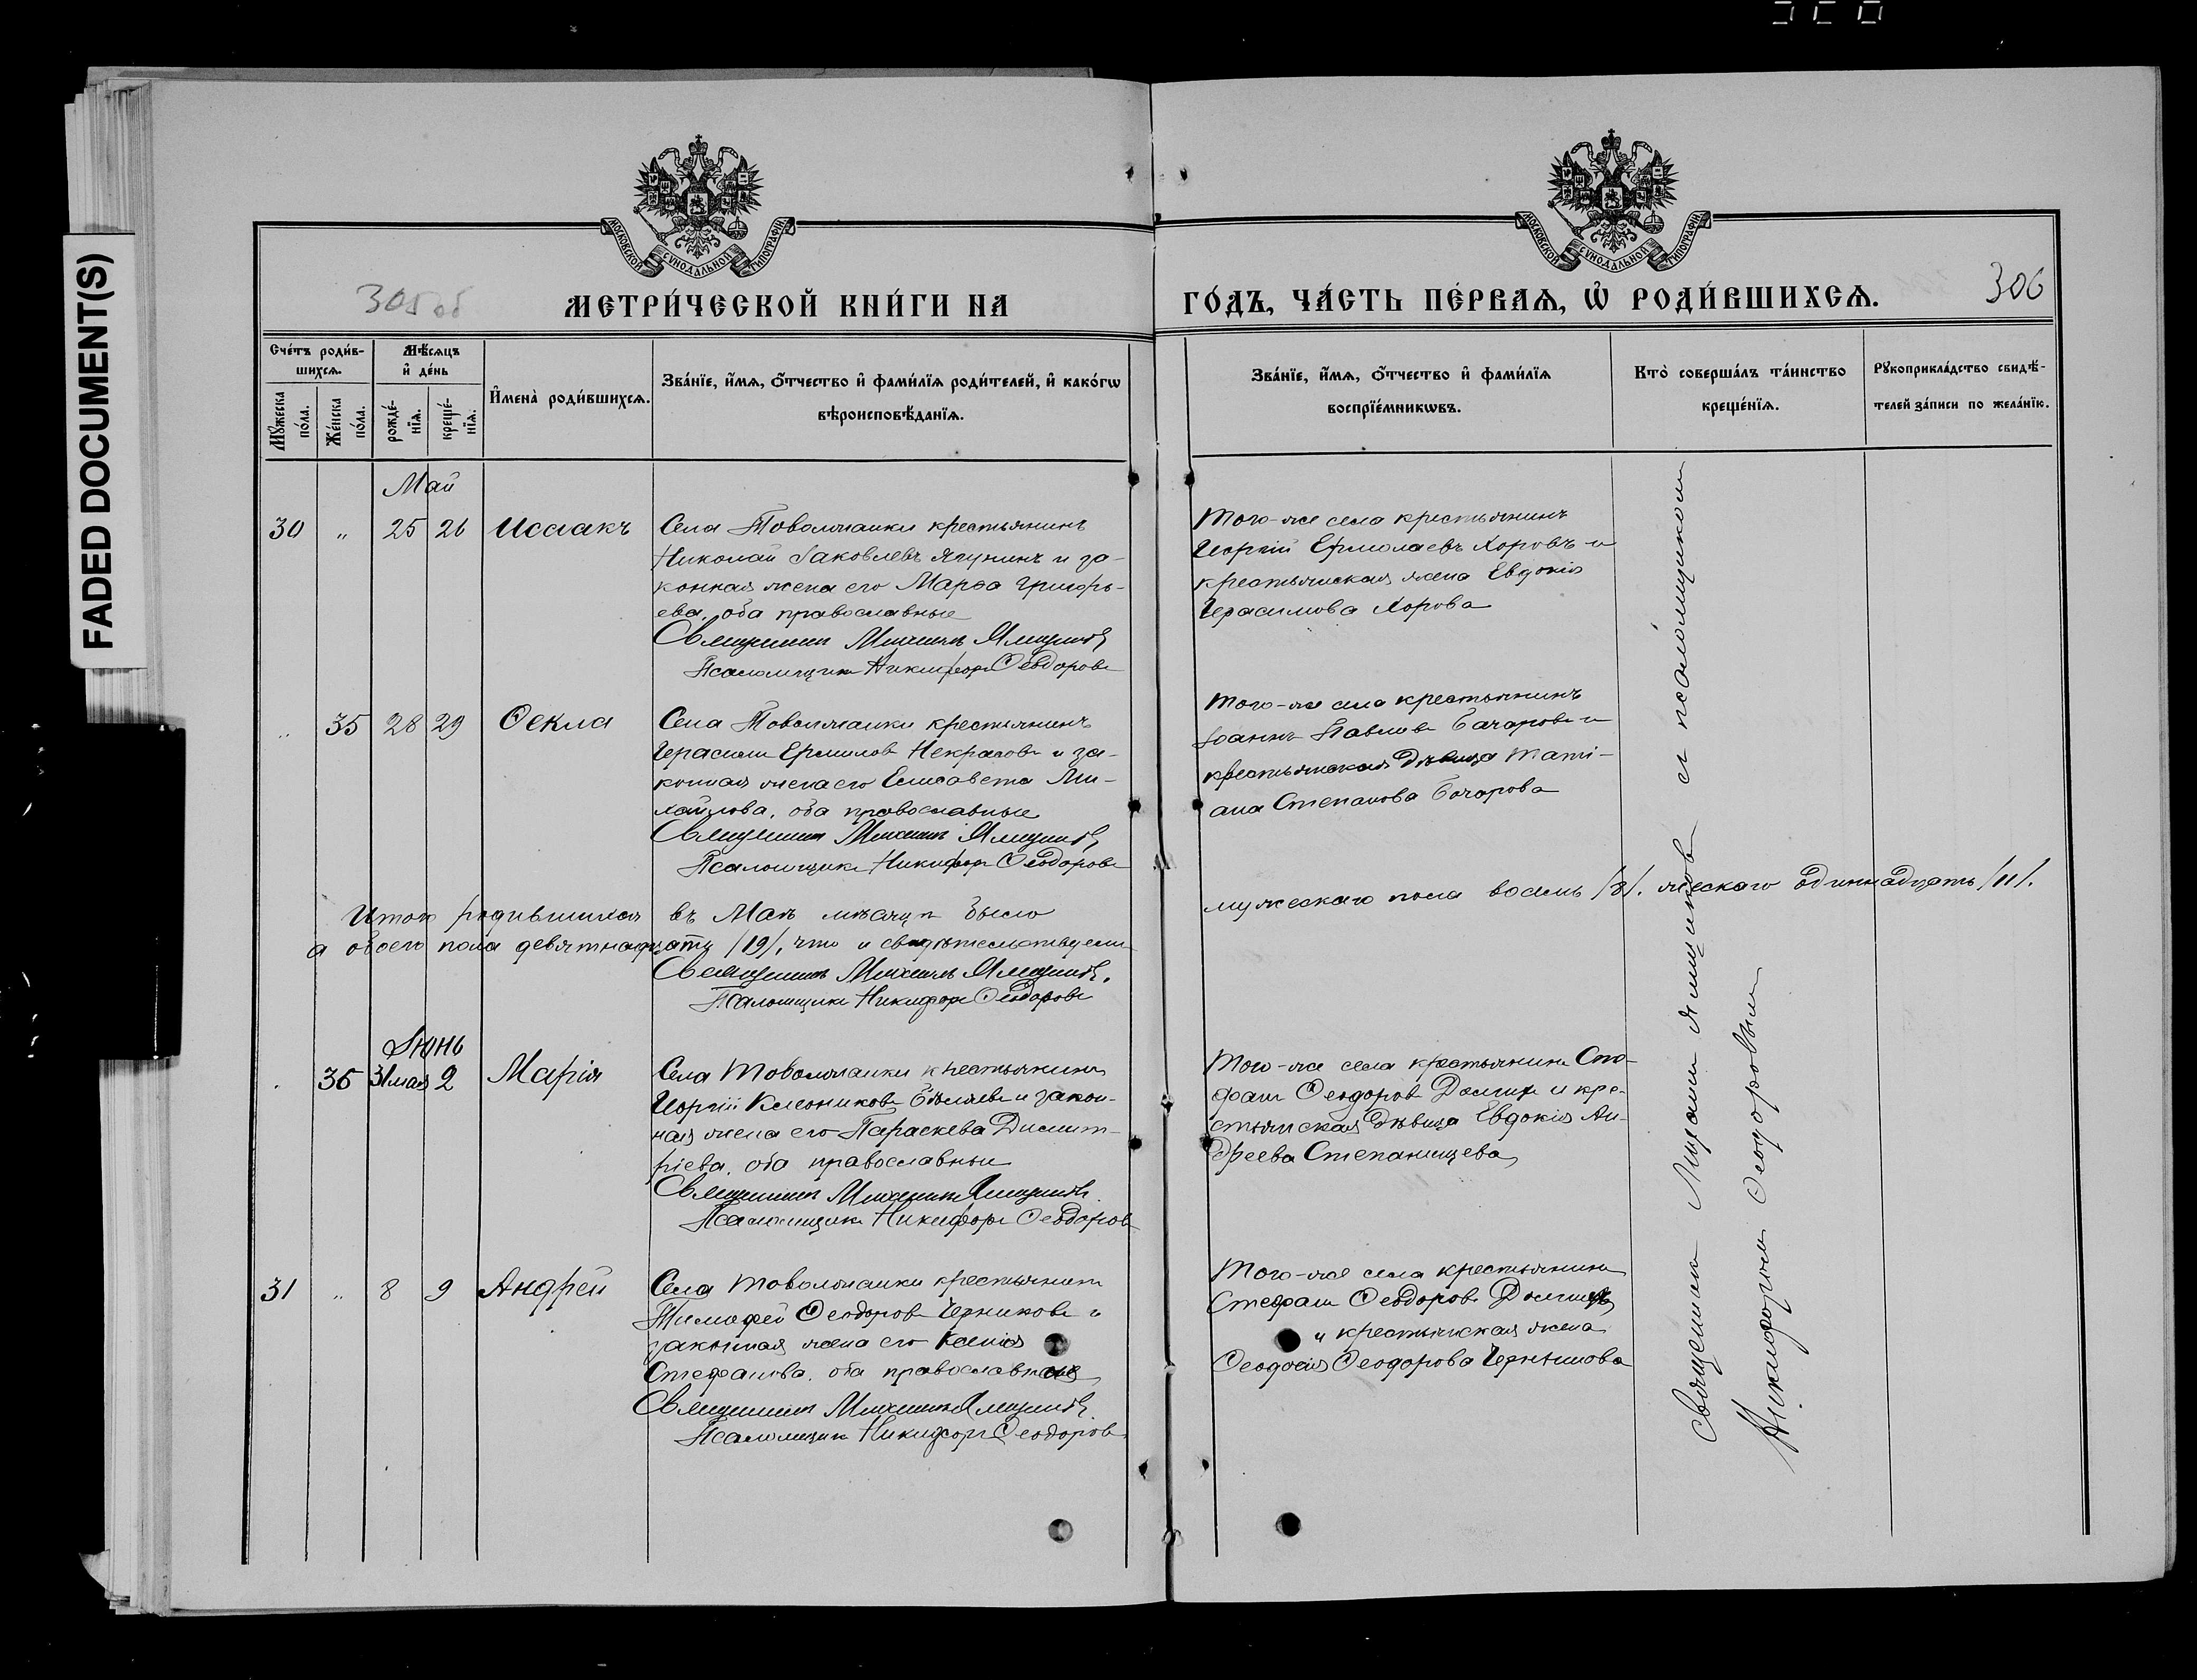 FADED DOCUMENT(S)
МОСКОВСКОЙ СУНОДАЛЬНОЙ ТИПОГРАФІИ
МОСКОВСКОЙ СУНОДАЛЬНОЙ ТИПОГРАФІИ
305 об
МЕТРИ́ЧЕСКОЙ КНИ́ГИ НА
ГО́ДЪ, ЧА́СТЬ ПЕ́РВАѦ, Ѡ РОДИ́ВШИХСѦ.
306
Сче́тъ роди́в-
шихсѧ.
Мꙋ́жеска по́ла.
Же́нска по́ла.
Мѣ́сѧцъ
и҆ де́нь
рожде́-
нїѧ.
креще́-
нїѧ.
И҆мена̀ роди́вшихсѧ.
Зва́нїе, и҆́мѧ, ѻ҆́тчество и҆ фами́лїѧ роди́телей, и҆ како́гѡ
вѣроисповѣ́данїѧ.
Зва́нїе, и҆́мѧ, ѻ҆́тчество и҆ фами́лїѧ
воспрїе́мникѡвъ.
Кто̀ соверша́лъ та́инство
креще́нїѧ.
Рꙋкоприкла́дство свидѣ́-
телей за́писи по жела́нїю.
Май
30 " 25 26 Исаакъ
Села Товолжанки крестьянинъ
Николай Іаковлевъ Ягунинъ и за-
конная жена его Марѳа Григорь-
ева, оба православные
Священникъ Михаилъ Ямщиковъ
Псаломщикъ Никифоръ Ѳеодоровъ
Того-же села крестьянинъ
Георгій Ермолаевъ Хоровъ и
крестьянская жена Евдокія
Герасимова Хорова
" 35 28 29 Ѳекла
Села Товолжанки крестьянинъ
Герасимъ Ермиловъ Некрасовъ и за-
конная жена его Елисавета Ми-
хайлова, оба православные
Священникъ Михаилъ Ямщиковъ
Псаломщикъ Никифоръ Ѳеодоровъ
Того-же села крестьянинъ
Іоаннъ Павловъ Бочаровъ и
крестьянская дѣвица Тати-
ана Степанова Бочарова
Итого родившихся въ Маѣ мѣсяцѣ было
мужескаго пола восемь /8/. женскаго одиннадцать /11/.
а обоего пола девятнадцать /19/, что и свидѣтельствуемъ
Священникъ Михаилъ Ямщиковъ.
Псаломщикъ Никифоръ Ѳеодоровъ
Іюнь
36 31 мая 2 Марія
Села Товолжанки крестьянинъ
Георгій Бѣляевъ и закон-
ная жена его Параскева Димит-
ріева, оба православные
Священникъ Михаилъ Ямщиковъ.
Псаломщикъ Никифоръ Ѳеодоровъ
Того-же села крестьянинъ Сте-
фанъ Ѳеодоровъ Долгихъ и кре-
стьянская дѣвица Евдокія Ан-
дреева Степанищева
31 " 8 9 Андрей
Села Товолжанки крестьянинъ
Тимофей Ѳеодоровъ Черниковъ и
законная жена его Ксенія
Стефанова, оба православные
Священникъ Михаилъ Ямщиковъ.
Псаломщикъ Никифоръ Ѳеодоровъ
Того-же села крестьянинъ
Стефанъ Ѳеодоровъ Долгихъ
и крестьянская жена
Ѳеодосія Ѳеодорова
Священникъ Михаилъ Ямщиковъ съ псаломщикомъ
Никифоромъ Ѳеодоровымъ